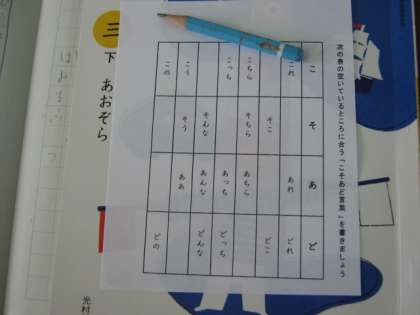 次の表の空いているところに合う「こそあど言葉」を書きましょう
こ そ あ ど
これ あれ どれ
そこ どこ
こちら そちら あちら
こっち あっち どっち
そんな あんな どんな
こう そう ああ
この どの
三
下
あおぞら
光村